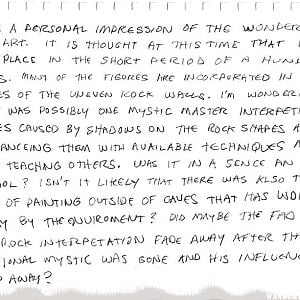 E A PERSONAL IMPRESSION OF THE WONDER
ART. IT IS THOUGHT AT THIS TIME THAT
PLACE IN THE SHORT PERIOD OF A HUN
S. MANY OF THE FIGURES ARE INCORPORATED IN
ES OF THE UNEVEN ROCK WALLS. I'M WONDERI
WAS POSSIBLY ONE MYSTIC MASTER INTERPETI
ES CAUSED BY SHADOWS ON THE ROCK SHAPES A
ANCEING THEM WITH AVAILABLE TECHNIQUES A
TEACHING OTHERS. WAS IT IN A SENCE AN
OOL? ISN'T IT LIKELY THAT THERE WAS ALSO T
OF PAINTING OUTSIDE OF CAVES THAT HAS WOR
Y BY THE ENVIROMENT? DID MAYBE THE FAD
ROCK INTERPETATION FADE AWAY AFTER TH
IONAL MYSTIC WAS GONE AND HIS INFLUENC
D AWAY?